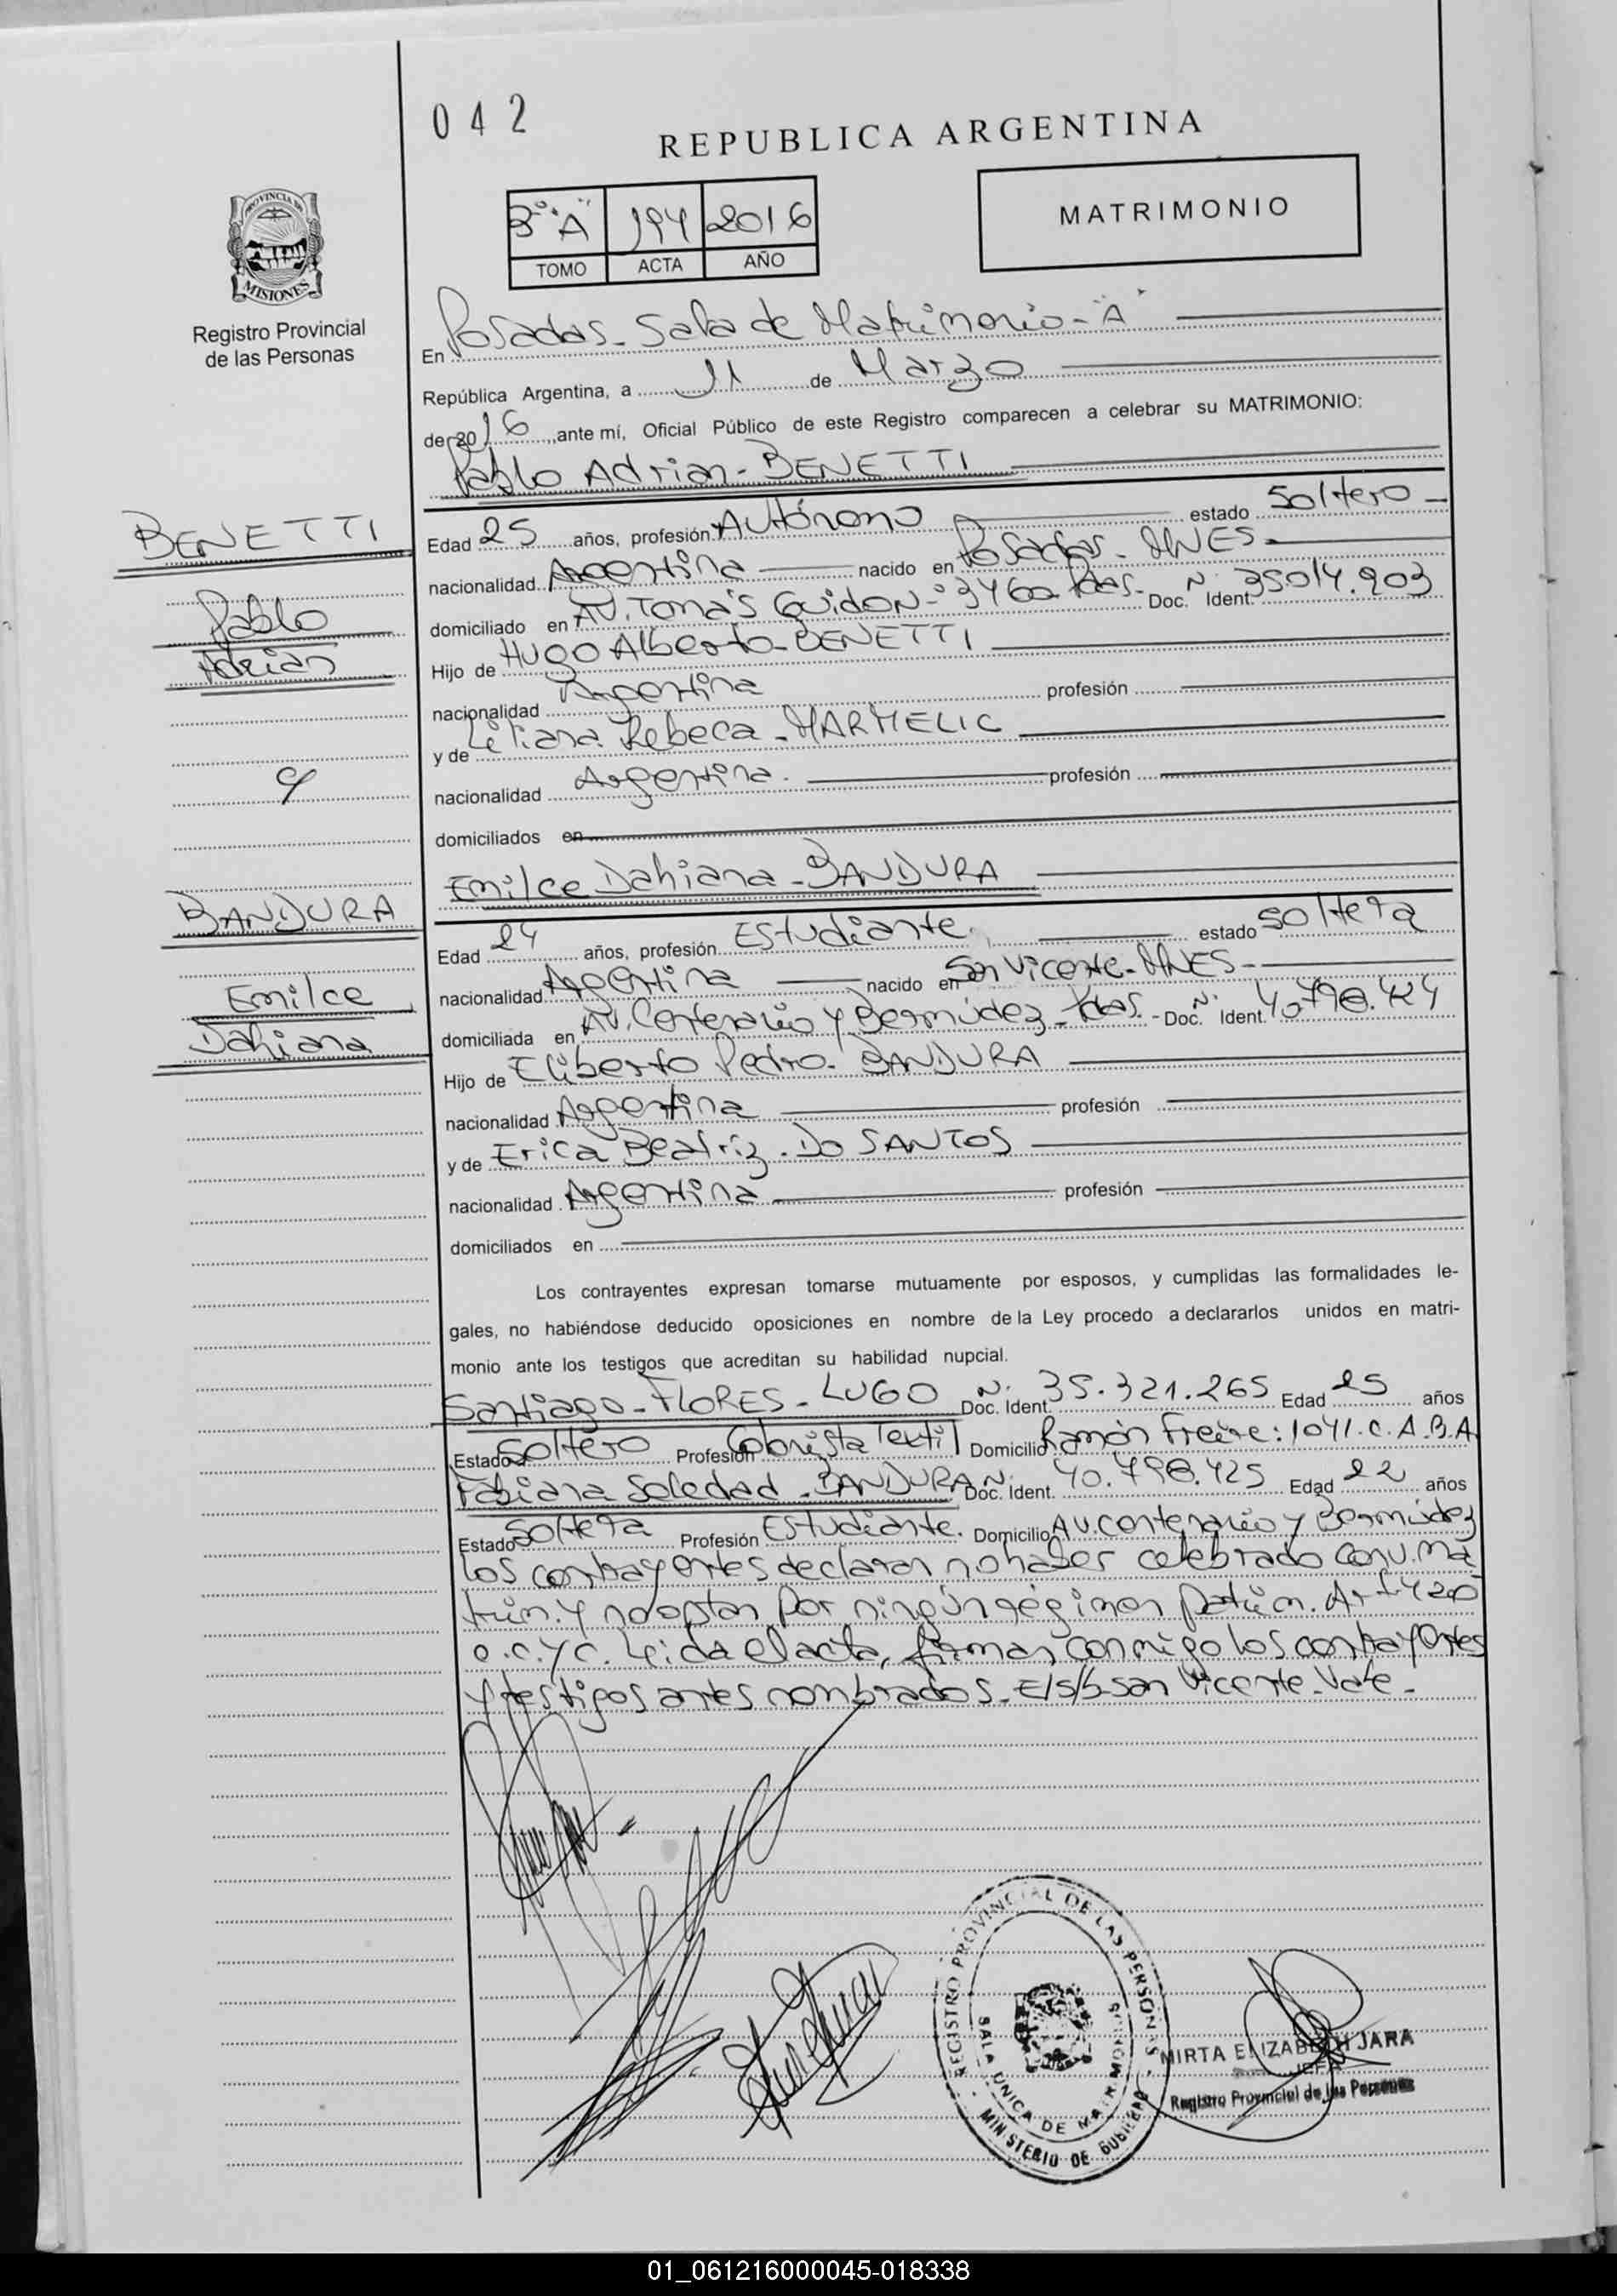 042
REPUBLICA ARGENTINA
3º "A" 194 2016
TOMO ACTA AÑO
MATRIMONIO
PROVINCIA DE
MISIONES
Registro Provincial
de las Personas
En Posadas - Sala de Matrimonio - "A"
República Argentina, a 11 de Marzo
de 2016, ante mí, Oficial Público de este Registro comparecen a celebrar su MATRIMONIO:
Pablo Adrian - BENETTI
BENETTI
Pablo
Adrian
y
BANDURA
Emilce
Dahiana
Edad 25 años, profesión Autónomo estado Soltero -
nacionalidad Argentina nacido en Posadas - MNES -
domiciliado en AV. Tomás Guido N-º 3460 Pdas. - Doc. Nº Ident. 35014.903
Hijo de HUGO Alberto - BENETTI
nacionalidad Argentina profesión
y de Liliana Rebeca - MARMELIC
nacionalidad Argentina. profesión
domiciliados en
Emilce Dahiana - BANDURA
Edad 24 años, profesión Estudiante. estado Soltera
nacionalidad Argentina nacido en San Vicente - MNES -
domiciliada en AV. Centenario y Bermúdez - Pdas. - Doc. Nº Ident. 40.798.424
Hijo de Eliberto Pedro - BANDURA
nacionalidad Argentina profesión
y de Erica Beatriz - DO SANTOS
nacionalidad Argentina profesión
domiciliados en
Los contrayentes expresan tomarse mutuamente por esposos, y cumplidas las formalidades le-
gales, no habiéndose deducido oposiciones en nombre de la Ley procedo a declararlos unidos en matri-
monio ante los testigos que acreditan su habilidad nupcial.
Santiago - FLORES - LUGO Nº Doc. Ident. 35.321.265 Edad 25 años
Estado Soltero Profesión Colorista Textil Domicilio Ramón Freire: 1041. C.A.B.A
Fabiana Soledad - BANDURA Nº Doc. Ident. 40.798.425 Edad 22 años
Estado Soltera Profesión Estudiante. Domicilio AV. Centenario y Bermúdez
Los contrayentes declaran no haber celebrado conv. ma
trim. y no optan por ningún régimen patrim. Art 420
o.C.yC. Leida el acta, firman conmigo los contrayentes
y testigos antes nombrados - E/S/b - San Vicente - Vale -
REGISTRO PROVINCIAL DE LAS PERSONAS
SALA UNICA DE MATRIMONIOS
MINISTERIO DE GOBIERNO
MIRTA ELIZABETH JARA
JEFA
Registro Provincial de las Personas
01_061216000045-018338